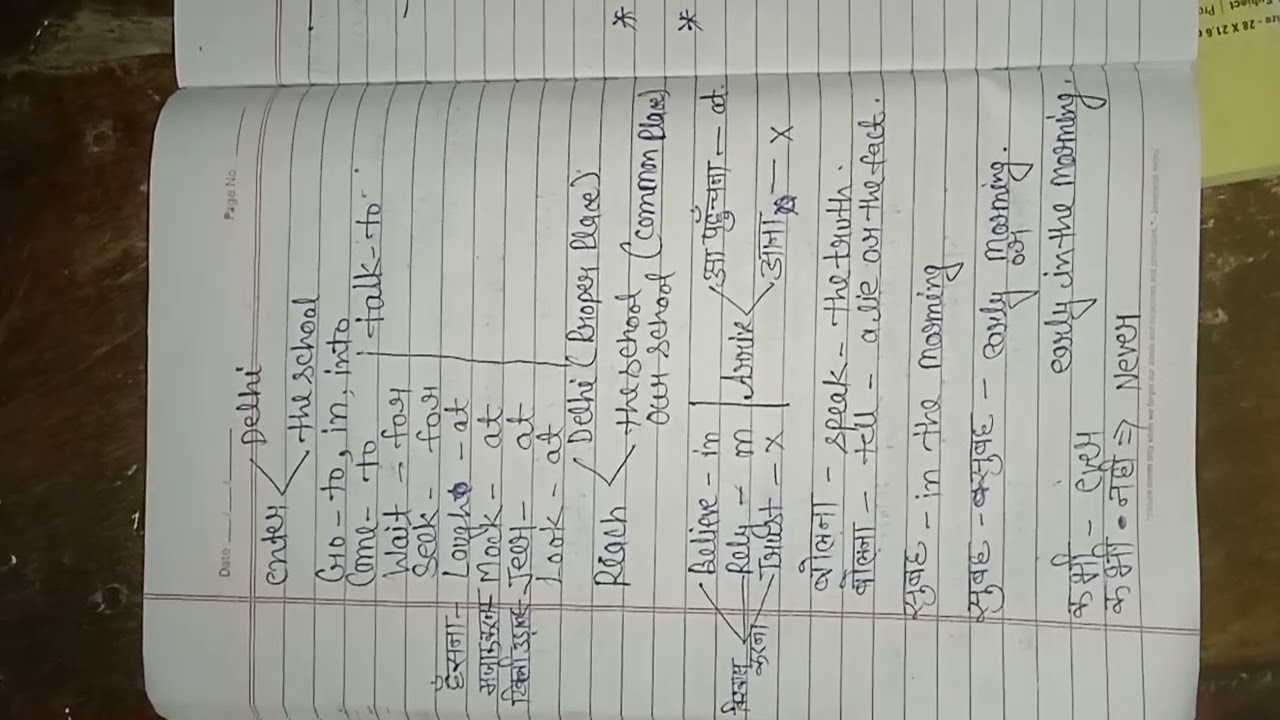 Page No.
Date
enter Delhi
the school
Go - to, in, into
Come - to talk - to
Wait - for
Seek - for
हँसना - Laugh - at
मजाक करना Mock - at
खिल्ली उड़ाना - Jeer - at
Look - at
Reach Delhi (Proper Place)
the school
our school (Common Place)
Believe - in आ पहुँचना - at
विश्वास करना Rely - Arrive
Trust - x आना - x
बोलना - speak - the truth.
बोलना - tell - a lie or the fact.
सुबह - in the morning
सुबह - सुबह - early morning.
or
early in the morning.
कभी - ever
कभी - नहीं => Never